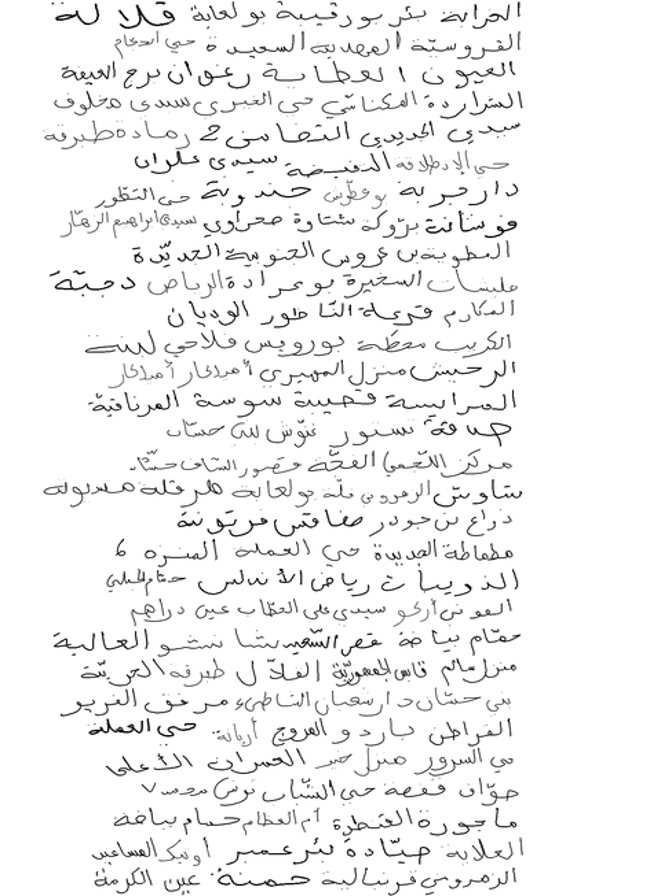 الخزانة بئر بورقيبة بولعابة قلالة
الفروستة المهدية السعيدة حي
العيون العطاية رغوان برج العيفة
الشراردة المكناسي حي الخيري سيدي مخلوف
سيدي الجديدي التضامن 2 رمادة طبرقة
حي النفيضة سيدي علوان
دار حربة بوعطوش جندوبة حي التطور
فوسانة بروكة شتاوة صحراوي سيدي ابراهيم الزهار
المطوية بن عروس الجنوبية الجديدة
السخيرة بوعرادة الرياض دجبة
المكارم قرعة الناظور الوديان
الكريب محطة بورويس فلاحي لبنة
الرحيش منزل المهيري أميلكار أميلكار
المرايسة قصيبة سوسة المرناقية
تستور غنوش بني حسان
مركز اللخمي الفجة قصور الساف
ساوش الزهروني فلة بولعابة هرقلة
ذراع بن جودر صفاقس فريونة
مطماطة الجديدة حي العملة المنزه 6
الذويبات رياض الأندلس حمام
أركو سيدي علي الحطاب عين دراهم
حمام بياضة قصر السعيد العالية
منزل سالم قابس الجمهورية الفلال طبرقة
بني حسان دار شعبان الشاطئ مرفق
القراطن باردو المروج أريانة حي العملة
حي السرور منزل حر العمران الأعلى
صواف قفصة حي الشباب
ماجورة القنطرة أم العظام حمام بياضة
العلاية صيادة بئر عمير
الزهروني قرنبالية حمنة عين الكرمة